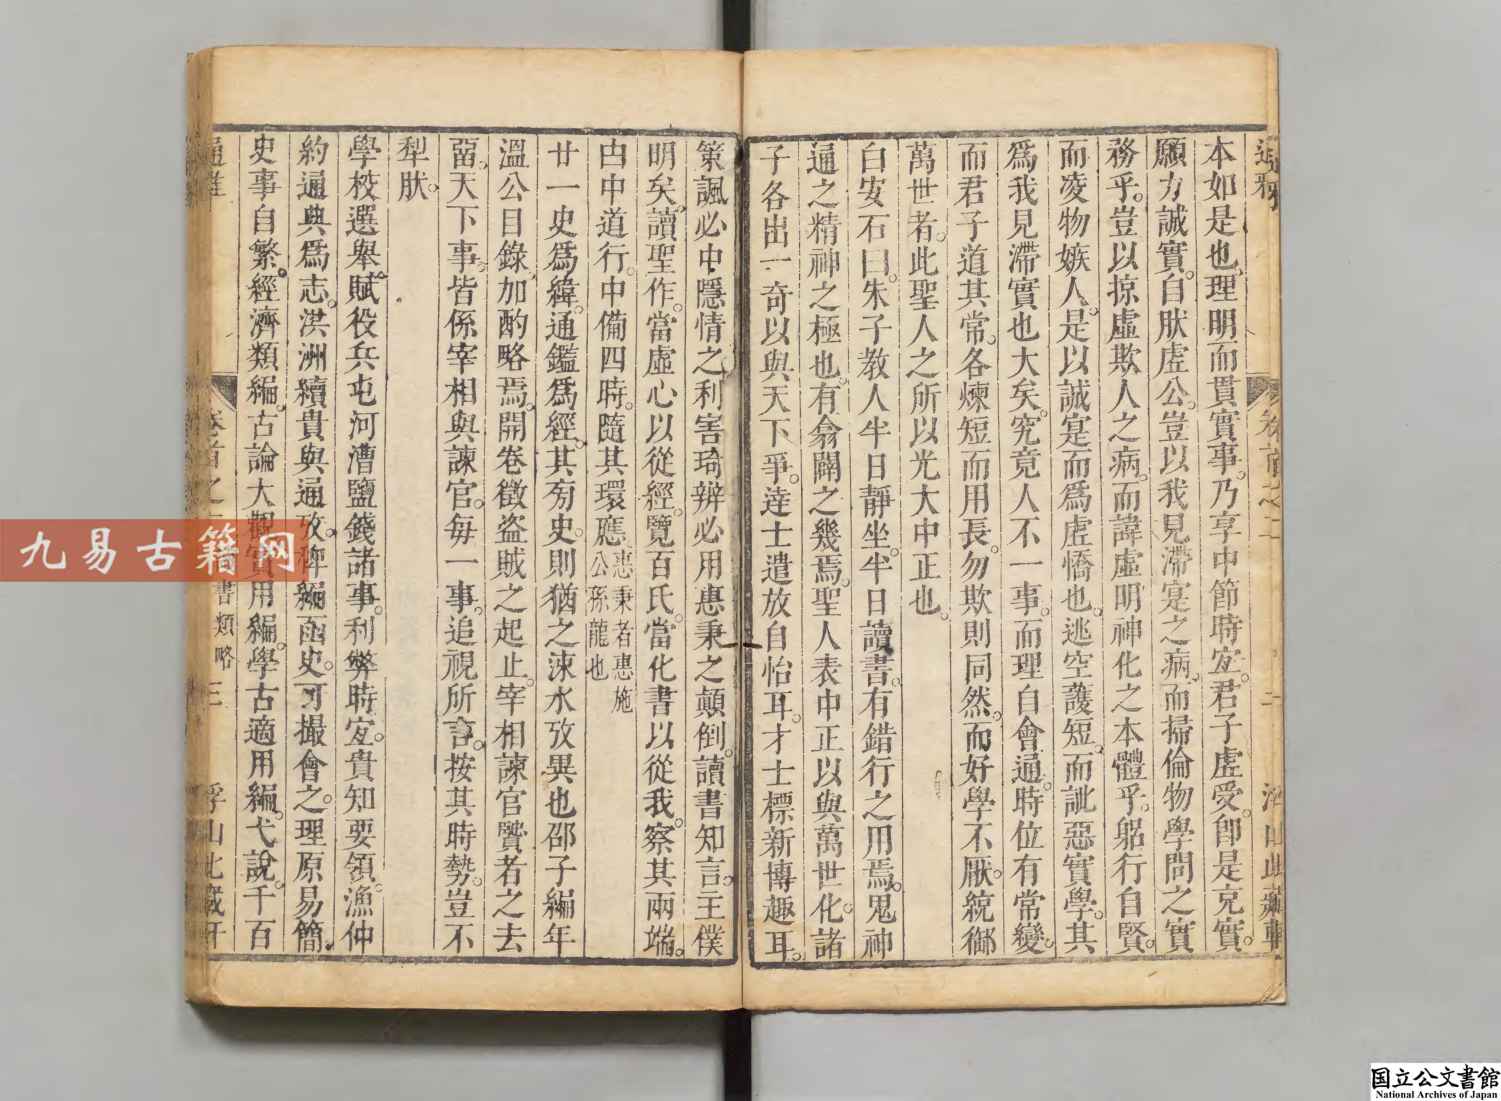 本如是也理明而貫實事。乃享中節時宐。君子虛受。卽是充實。
願力誠實。自肰虛公。豈以我見滯寔之病。而掃倫物學問之實
務乎。豈以掠虛欺人之病。而諱虛明神化之本體乎。躬行自賢。
而凌物嫉人。是以誠寔而爲虛憍也。逃空護短。而訿惡實學。其
爲我見滯實也大矣。究竟人不一事。而理自會通。時位有常變。
而君子道其常。各煉短而用長。勿欺則同然。而好學不厭。統御
萬世者。此聖人之所以光大中正也。
白安石曰。朱子教人半日靜坐。半日讀書。有錯行之用焉。鬼神
通之精神之極也。有翕闢之幾焉。聖人表中正以與萬世化。諸
子各出一奇以與天下爭。逹士遣放自怡耳。才士標新博趣耳。
策諷必中隱情之利害琦辨必用惠秉之顛倒。讀書知言。主僕
明矣。讀聖作。當虛心以從經。覽百氏。當化書以從我。察其兩端。
由中道行。中備四時。隨其環應。惠秉者惠施
公孫龍也
廿一史爲緯。通鑑爲經。其旁史。則猶之涑水攷異也邵子編年
溫公目錄加酌略焉。開卷徵盜賊之起止。宰相諫官贒者之去
畱。天下事。皆係宰相與諫官。每一事。追視所言。按其時勢。豈不
犁肰。
學校選舉。賦役兵屯河漕鹽錢諸事。利弊時宐。貴知要領。漁仲
約通典爲志。洪洲續貴與通攷。稗編函史。可撮會之。理原易簡
史事自繁。經濟類編。古論大觀實用編。學古適用編。弋說。千百
通雅
卷首之二
書類略
三
浮山此藏軒
九易古籍网
国立公文書館
National Archives of Japan